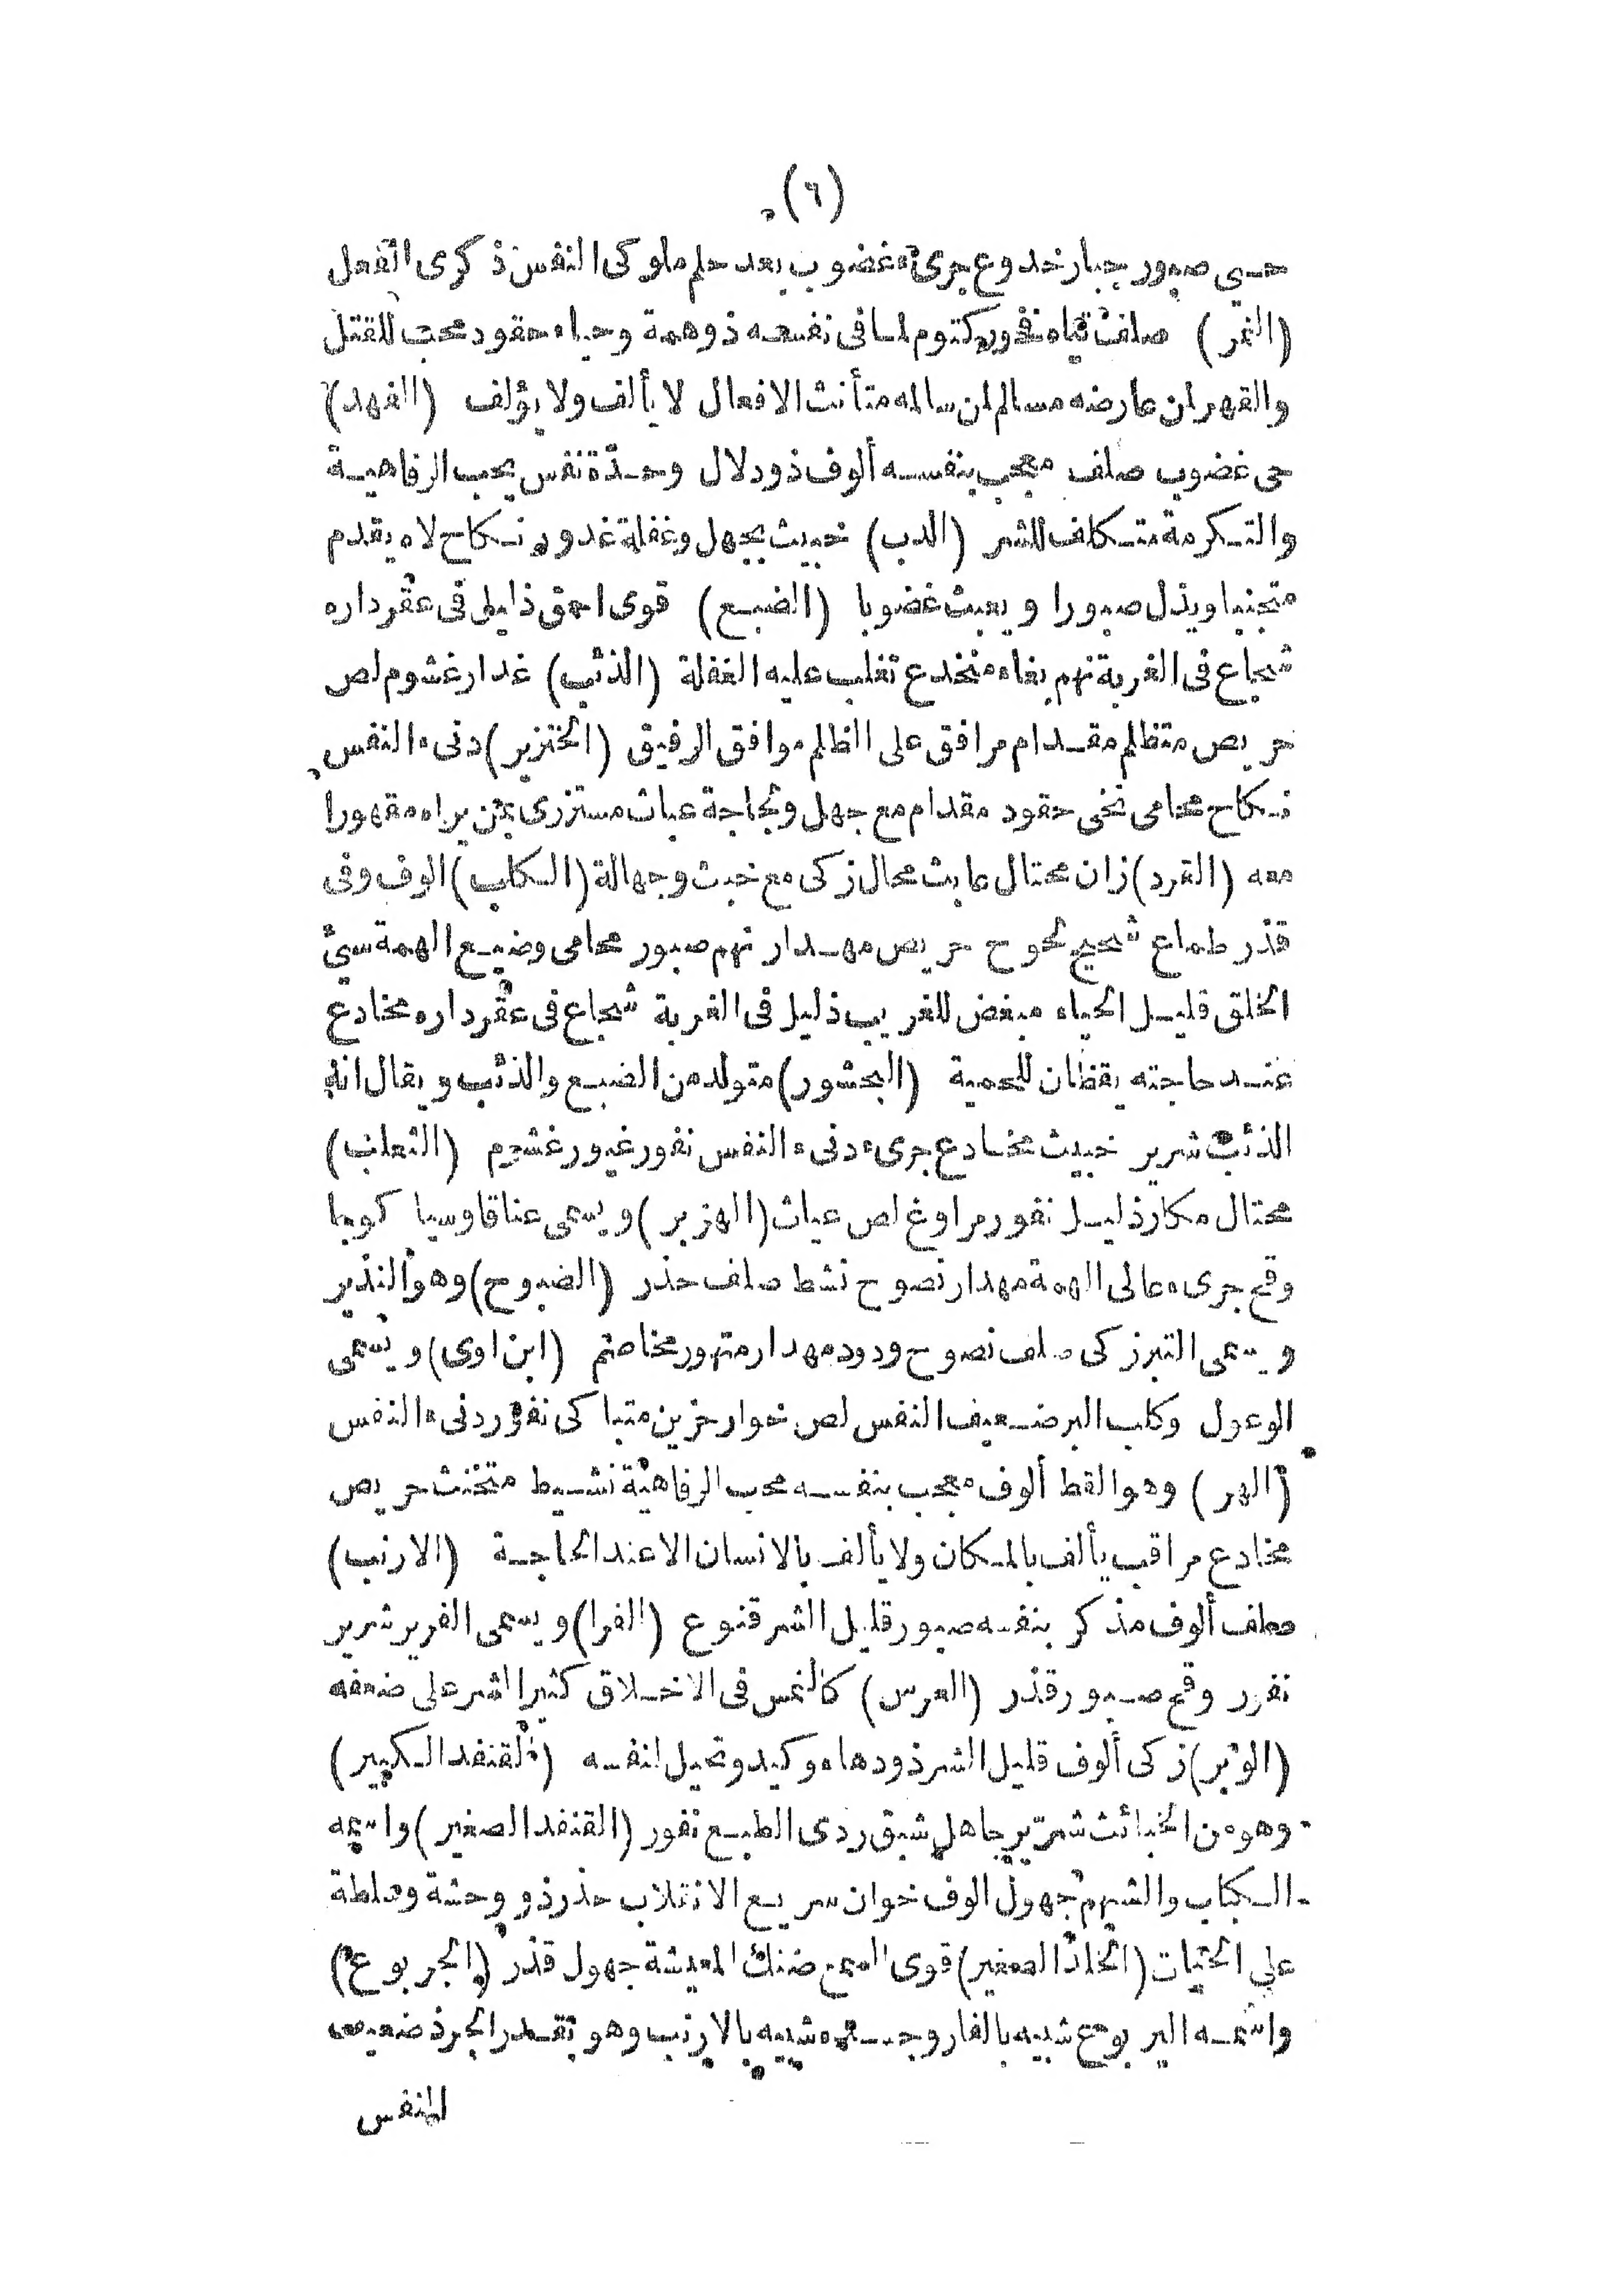 (٦)
حيي صبور جبار خدوع جرىء غضوب بعد حلم ملوكى النفس ذكرى الفعل
(النمر) صلف تياه نفور كتوم لما فى نفسه ذوهمة وحياء حقود محب للقتل
والقهر لمن عارضه مسالم لمن سالمه متأنث الافعال لا يألف ولا يؤلف (الفهد)
حى غضوب صلف معجب بنفسه ألوف ذو دلال وحدّة نفس يحب الرفاهية
والتكرمة متكلف للشر (الدب) خبيث بجهل وغفلة غدور نكاح لاه يقدم
متجنبا ويذل صبورا ويعبث غضوبا (الضبع) قوى احمق ذليل فى عقر داره
شجاع فى الغربة نهم بغاء منخدع تغلب عليه الغفلة (الذئب) غدار غشوم لص
حريص متظلم مقدام مرافق على الظلم موافق الرفيق (الخنزير) دنىء النفس
نكاح محامى نخى حقود مقدام مع جهل ولجاجة عباث مستزرى بمن يراه مقهورا
معه (القرد) زان محتال عابث محال زكى مع خبث وجهالة (الكلب) الوف وفى
قذر طماع شحيح لحوح حريص مهدار نهم صبور محامى وضيع الهمة سيئ
الخلق قليل الحياء مبغض للغريب ذليل فى الغربة شجاع فى عقر داره مخادع
عند حاجته يقظان للحمية (البحشور) متولد من الضبع والذئب ويقال انه
الذئب شرير خبيث مخادع جرىء دنىء النفس نفور غيور غشوم (الثعلب)
محتال مكار ذليل نفور مراوغ لص عياث (الهزبر) ويسمى عناقا وسيا كوها
وقح جرىء عالى الهمة مهدار نصوح نشط صلف حذر (الضبوح) وهو النذير
ويسمى التبر زكى صلف نصوح ودود مهدار متهور مخاصم (ابن اوى) ويسمى
الوعول وكلب البر ضعيف النفس لص خوار حزين متباكى نفور دنىء النفس
(الهر) وهو القط ألوف معجب بنفسه محب الرفاهية نشيط متخنث حريص
مخادع مراقب يألف بالمكان ولا يألف بالانسان الا عند الحاجة (الارنب)
صلف ألوف مذكر بنفسه صبور قليل الشر قنوع (الفرا) ويسمى الفرير شرير
نفور وقح صبور قذر (العرس) كالنمس فى الاخلاق كثير الشر على ضعفه
(الوبر) زكى ألوف قليل الشر ذو دهاء وكيد وتحيل لنفسه (القنفد الكبير)
وهو من الخبائث شرّير جاهل شبق ردى الطبع نفور (القنفد الصغير) واسمه
الكباب والشيهم جهول الوف خوان سريع الانقلاب حذر ذو وحشة وسلطة
على الحيات (الخلد الصغير) قوى السمع ضنك المعيشة جهول قذر (الجربوع)
واسمه اليربوع شبيه بالفار وجسمه شبيه بالارنب وهو بقدر الجرذ ضعيف
النفس